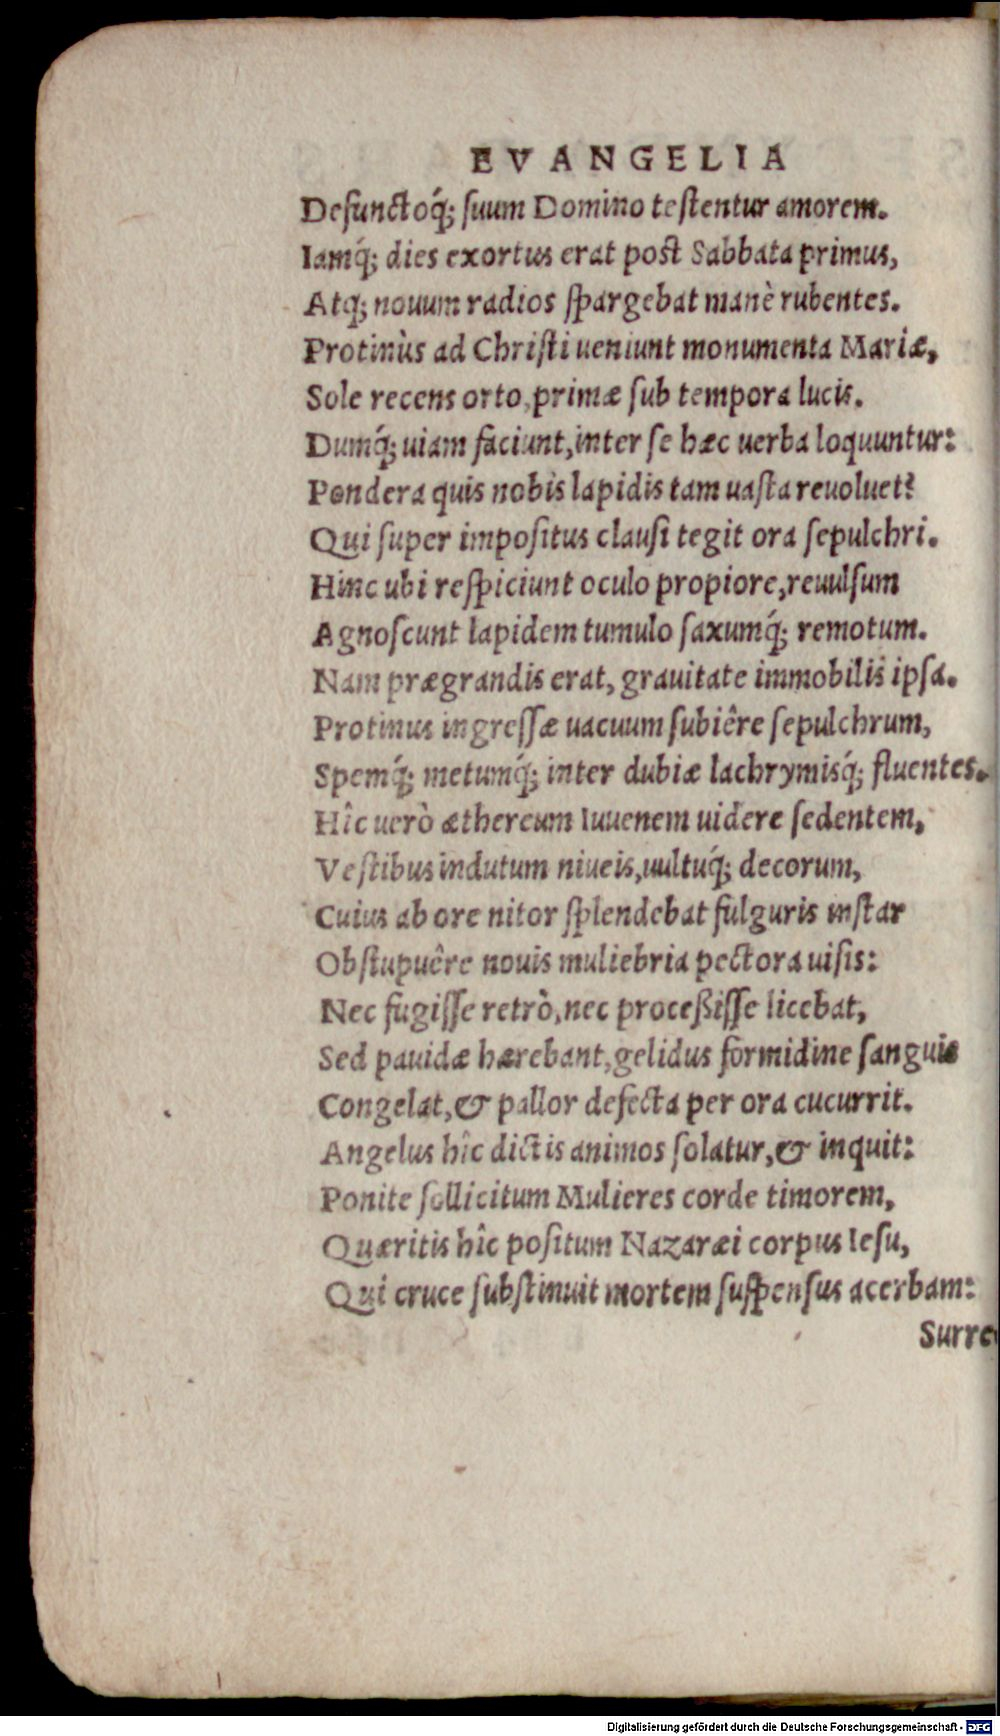 EVANGELIA
Defunctoq́; suum Domino testentur amorem.
Iamq́; dies exortus erat post Sabbata primus,
Atq; nouum radios spargebat manè rubentes.
Protinùs ad Christi ueniunt monumenta Mariæ,
Sole recens orto, primæ sub tempora lucis.
Dumq́; uiam faciunt, inter se hæc uerba loquuntur:
Pondera quis nobis lapidis tam uasta reuoluet?
Qui super impositus clausi tegit ora sepulchri.
Hinc ubi respiciunt oculo propiore, reuulsum
Agnoscunt lapidem tumulo saxumq́; remotum.
Nam prægrandis erat, grauitate immobilis ipsa.
Protinus ingressæ uacuum subiêre sepulchrum,
Spemq́; metumq́; inter dubiæ lachrymisq́; fluentes.
Hîc uerò æthereum Iuuenem uidere sedentem,
Vestibus indutum niueis, uultuq́; decorum,
Cuius ab ore nitor splendebat fulguris instar
Obstupuêre nouis muliebria pectora uisis:
Nec fugisse retrò, nec proceßisse licebat,
Sed pauidæ hærebant, gelidus formidine sanguis
Congelat, & pallor defecta per ora cucurrit.
Angelus hîc dictis animos solatur, & inquit:
Ponite sollicitum Mulieres corde timorem,
Quæritis hîc positum Nazaræi corpus Iesu,
Qui cruce substinuit mortem suspensus acerbam:
Surre
Digitalisierung gefördert durch die Deutsche Forschungsgemeinschaft - DFG